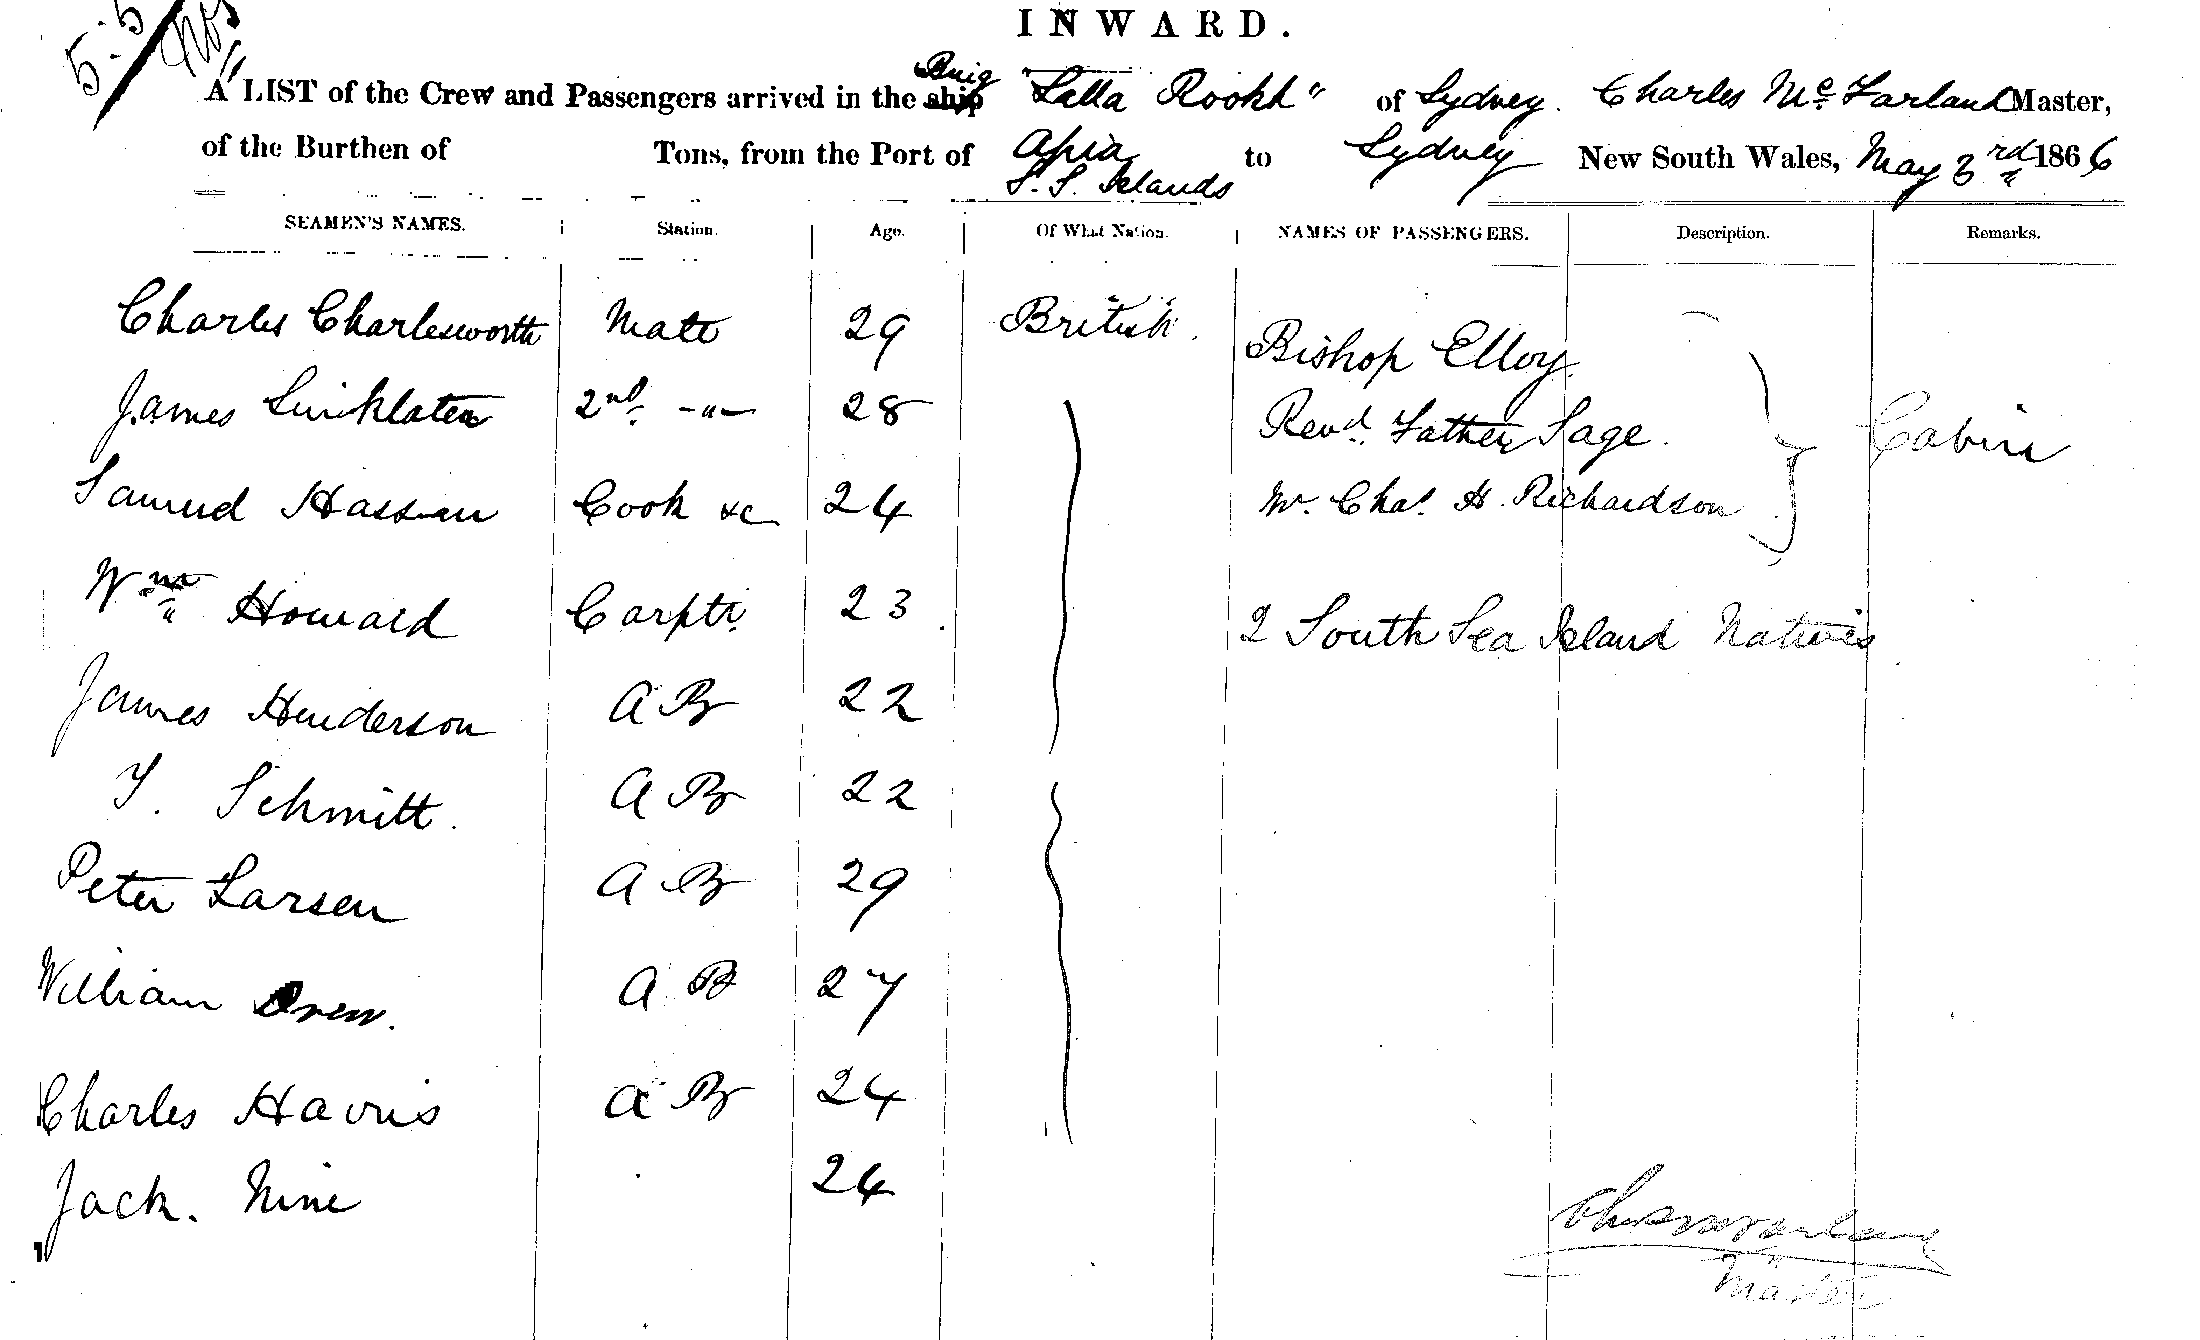 INWARD.
A LIST of the Crew and Passengers arrived in the ship Brig "Lalla Rookh" of Sydney. Charles Mc Farland Master,
of the Burthen of Tons, from the Port of Apia S. S. Islands to Sydney New South Wales, May 3rd 1866
SEAMEN'S NAMES. Station. Age. Of What Nation. NAMES OF PASSENGERS. Description. Remarks.
Charles Charlesworth Mate 29 British.
Bishop Elloy.
James Sinklater 2nd. -"- 28
Revd. Father Sage. Cabin
Samuel Hassan Cook &c 24
Mr. Chas. H. Richardson
Wm Howard Carptr. 23
2 South Sea Island Natives
James Henderson A B 22
Schmitt. A B 22
Peter Larsen A B 29
William Drew. A B 27
Charles Harris A B 24
Jack. Nine 24
Master